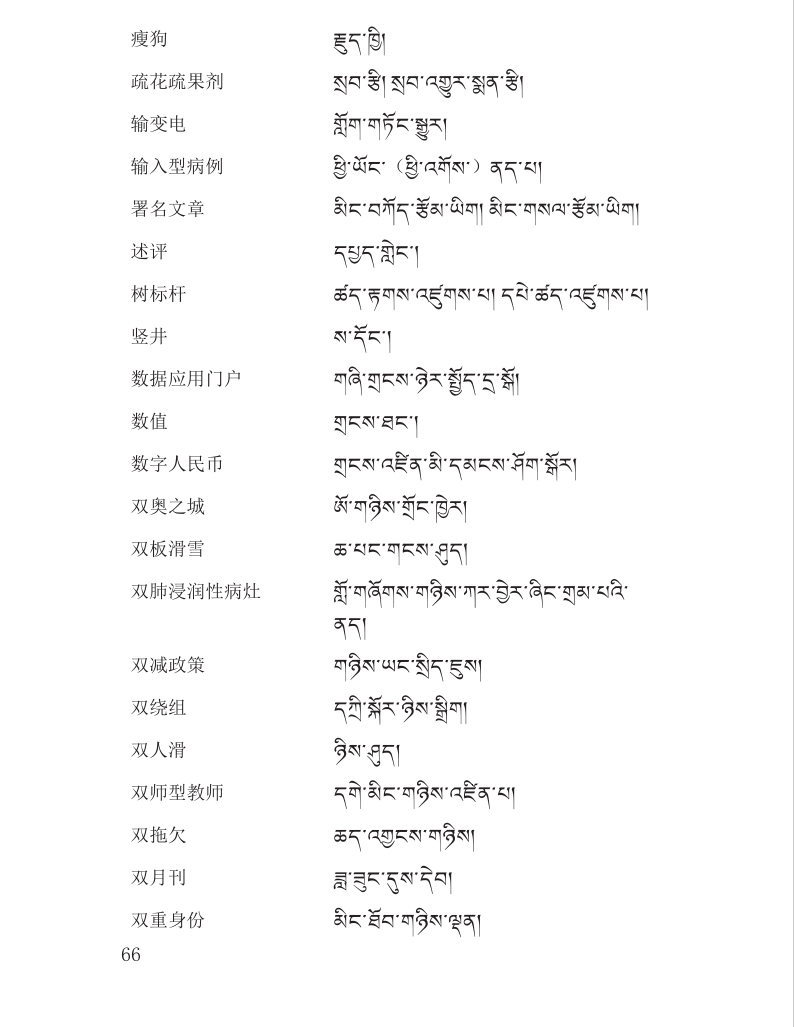 瘦狗 རྫུད་ཁྱི།
疏花疏果剂 སྲབ་རྩི། སྲབ་འགྱུར་སྨན་རྩི།
输变电 གློག་གཏོང་སྒྱུར།
输入型病例 ཕྱི་ཡོང་（ཕྱི་འགོས་）ནད་པ།
署名文章 མིང་བཀོད་རྩོམ་ཡིག། མིང་གསལ་རྩོམ་ཡིག།
述评 དཔྱད་གླེང་།
树标杆 ཚད་རྟགས་འཛུགས་པ། དཔེ་ཚད་འཛུགས་པ།
竖井 ས་དོང་།
数据应用门户 གཞི་གྲངས་ཉེར་སྤྱོད་དྲ་སྒོ།
数值 གྲངས་ཐང་།
数字人民币 གྲངས་འཛིན་མི་དམངས་ཤོག་སྒོར།
双奥之城 ཨོ་གཉིས་གྲོང་ཁྱེར།
双板滑雪 ཆ་པང་གངས་ཤུད།
双肺浸润性病灶 གློ་གཞོགས་གཉིས་ཀར་བྱེར་ཞིང་གྲམ་པའི་
ནད།
双减政策 གཉིས་ཡང་སྲིད་ཇུས།
双绕组 དཀྲི་སྐོར་ཉིས་སྒྲིག།
双人滑 ཉིས་ཤུད།
双师型教师 དགེ་མིང་གཉིས་འཛིན་པ།
双拖欠 ཆད་འགྱངས་གཉིས།
双月刊 ཟླ་ཟུང་དུས་དེབ།
双重身份 མིང་ཐོབ་གཉིས་ལྡན།
66